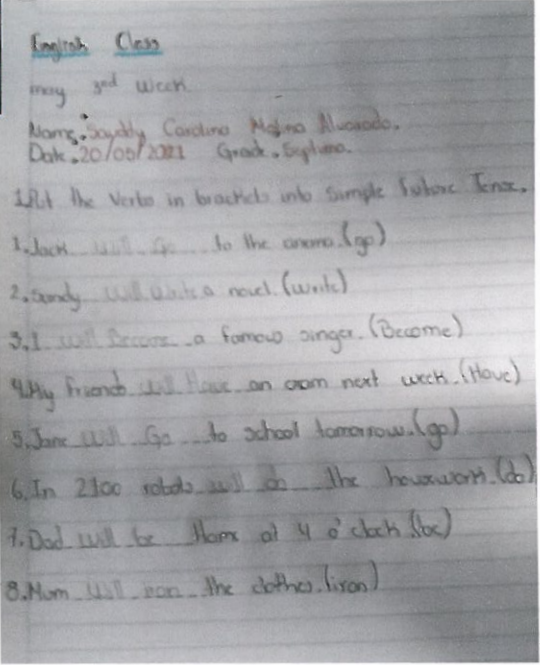 English Class
may 3rd Week
Name. Sayddy Carolina Molina Alvarado.
Date. 20/05/2021 Grade. Septimo.
1. Put the Verbs in brackets into Simple Future Tense.
1. Jack will Go to the cinema. (go)
2. Sandy will write a novel. (write)
3. I will Become a famous singer. (Become)
4. My Friends will Have an exam next week. (Have)
5. Jane Will Go to school tomorrow. (go)
6. In 2100 robots will do the housework. (do)
7. Dad will be Home at 4 o'clock. (be)
8. Mum will iron the clothes. (iron)